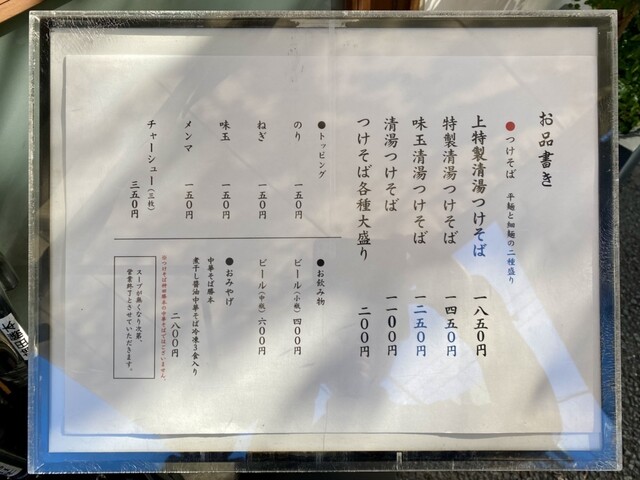 お品書き
●つけそば 平麺と細麺の二種盛り
上特製清湯つけそば 一八五〇円
特製清湯つけそば 一四五〇円
味玉清湯つけそば 一二五〇円
清湯つけそば 一一〇〇円
つけそば各種大盛り 二〇〇円
●トッピング
のり 一五〇円
ねぎ 一五〇円
味玉 一五〇円
メンマ 一五〇円
チャーシュー（三枚） 三五〇円
●お飲み物
ビール（小瓶） 四〇〇円
ビール（中瓶） 六〇〇円
●おみやげ
中華そば勝本
煮干し醤油中華そば冷凍3食入り
二八〇〇円
スープが無くなり次第、
営業終了とさせていただきます。